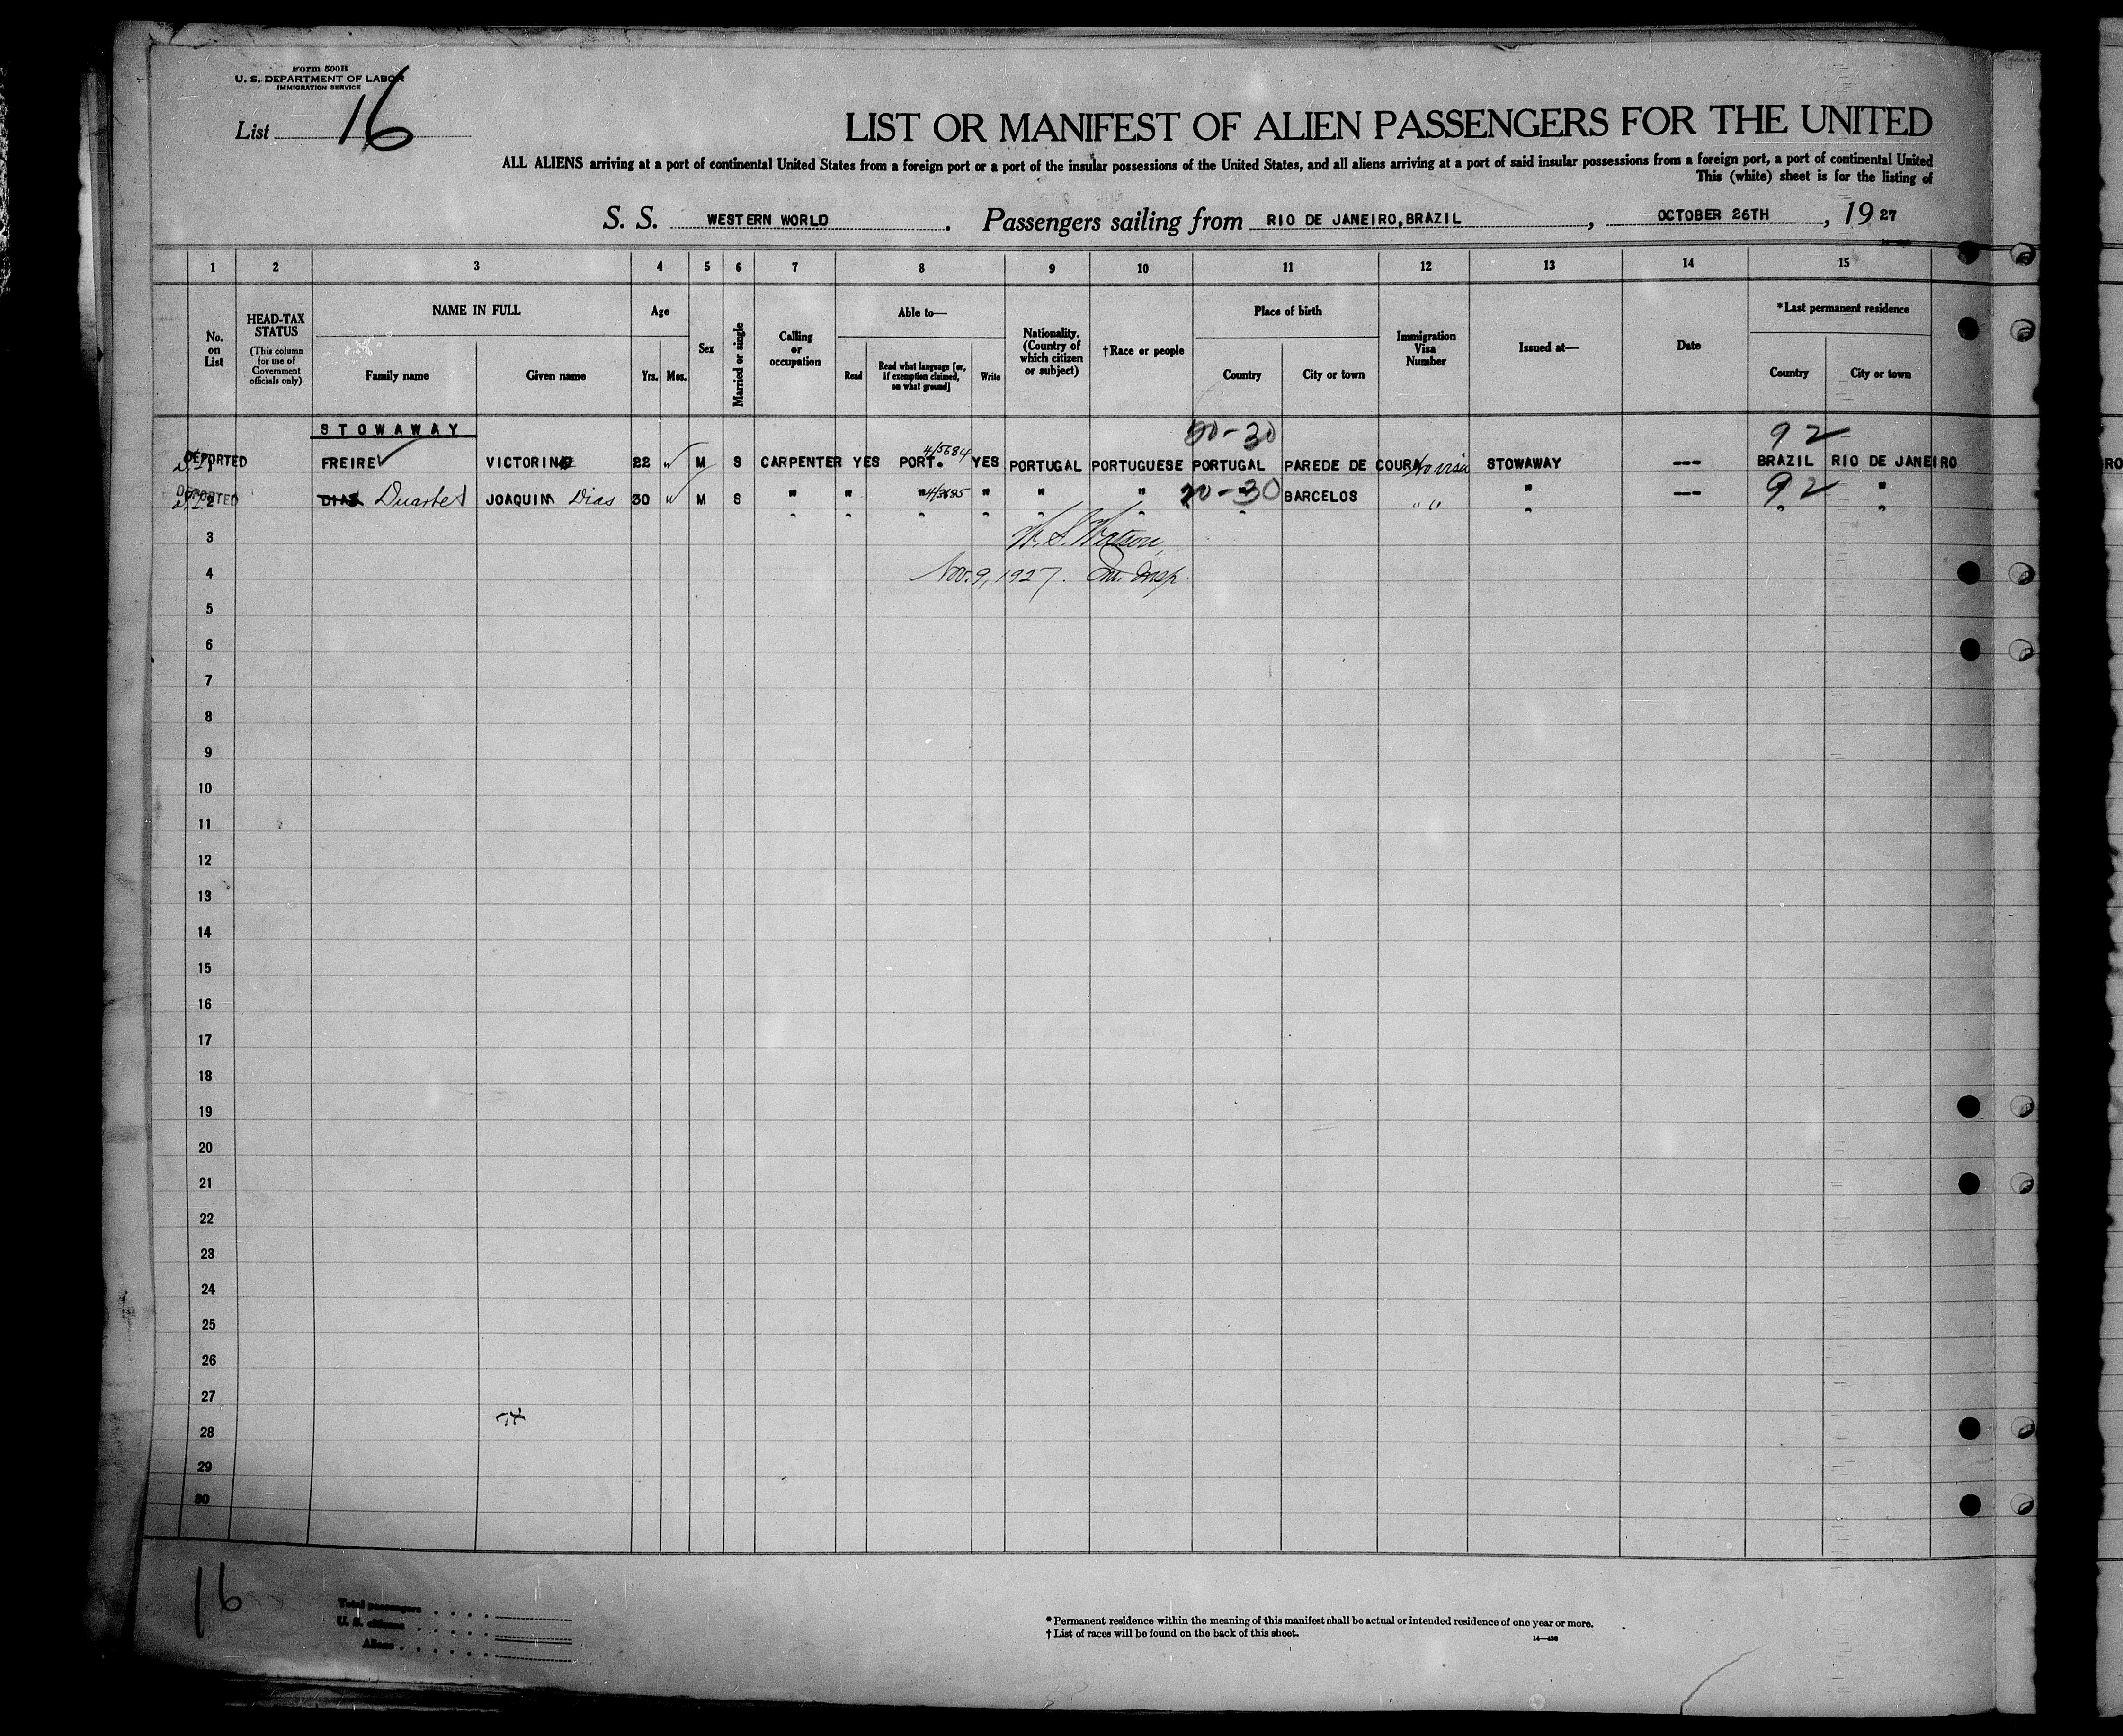 Form 500B
U. S. DEPARTMENT OF LABOR
IMMIGRATION SERVICE
List 16
LIST OR MANIFEST OF ALIEN PASSENGERS FOR THE UNITED
ALL ALIENS arriving at a port of continental United States from a foreign port or a port of the insular possessions of the United States, and all aliens arriving at a port of said insular possessions from a foreign port, a port of continental United
This (white) sheet is for the listing of
S. S. WESTERN WORLD . Passengers sailing from RIO DE JANEIRO, BRAZIL , OCTOBER 26TH , 19 27
1 2 3 4 5 6 7 8 9 10 11 12 13 14 15
No. on List
HEAD-TAX STATUS (This column for use of Government officials only)
NAME IN FULL
Family name Given name
Age
Yrs. Mos.
Sex
Married or single
Calling or occupation
Able to—
Read Read what language [or, if exemption claimed, on what ground] Write
Nationality. (Country of which citizen or subject)
†Race or people
Place of birth
Country City or town
Immigration Visa Number
Issued at—
Date
*Last permanent residence
Country City or town
STOWAWAY
30 92
DEPORTED FREIRE VICTORINO 22 M S CARPENTER YES PORT. YES PORTUGAL PORTUGUESE PORTUGAL PAREDE DE COURA No visa STOWAWAY --- BRAZIL RIO DE JANEIRO
DEPORTED 2 DIAS Duarte JOAQUIM Dias 30 M S " " " " " " 30 BARCELOS " " " --- 92 "
3 W. S. Watson,
4 Nov. 9, 1927. Im. Insp.
5
6
7
8
9
10
11
12
13
14
15
16
17
18
19
20
21
22
23
24
25
26
27
28
29
30
16
Total passengers . . . .
U. S. citizens . . . . .
Aliens . . . . . .
* Permanent residence within the meaning of this manifest shall be actual or intended residence of one year or more.
† List of races will be found on the back of this sheet.
14—430